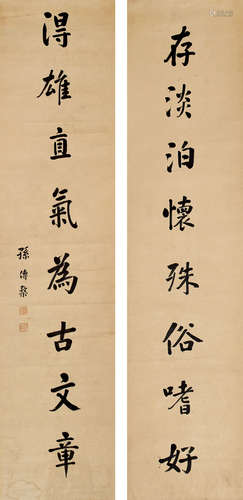 存淡泊懷殊俗嗜好
得雄直氣為古文章
孫傳棨